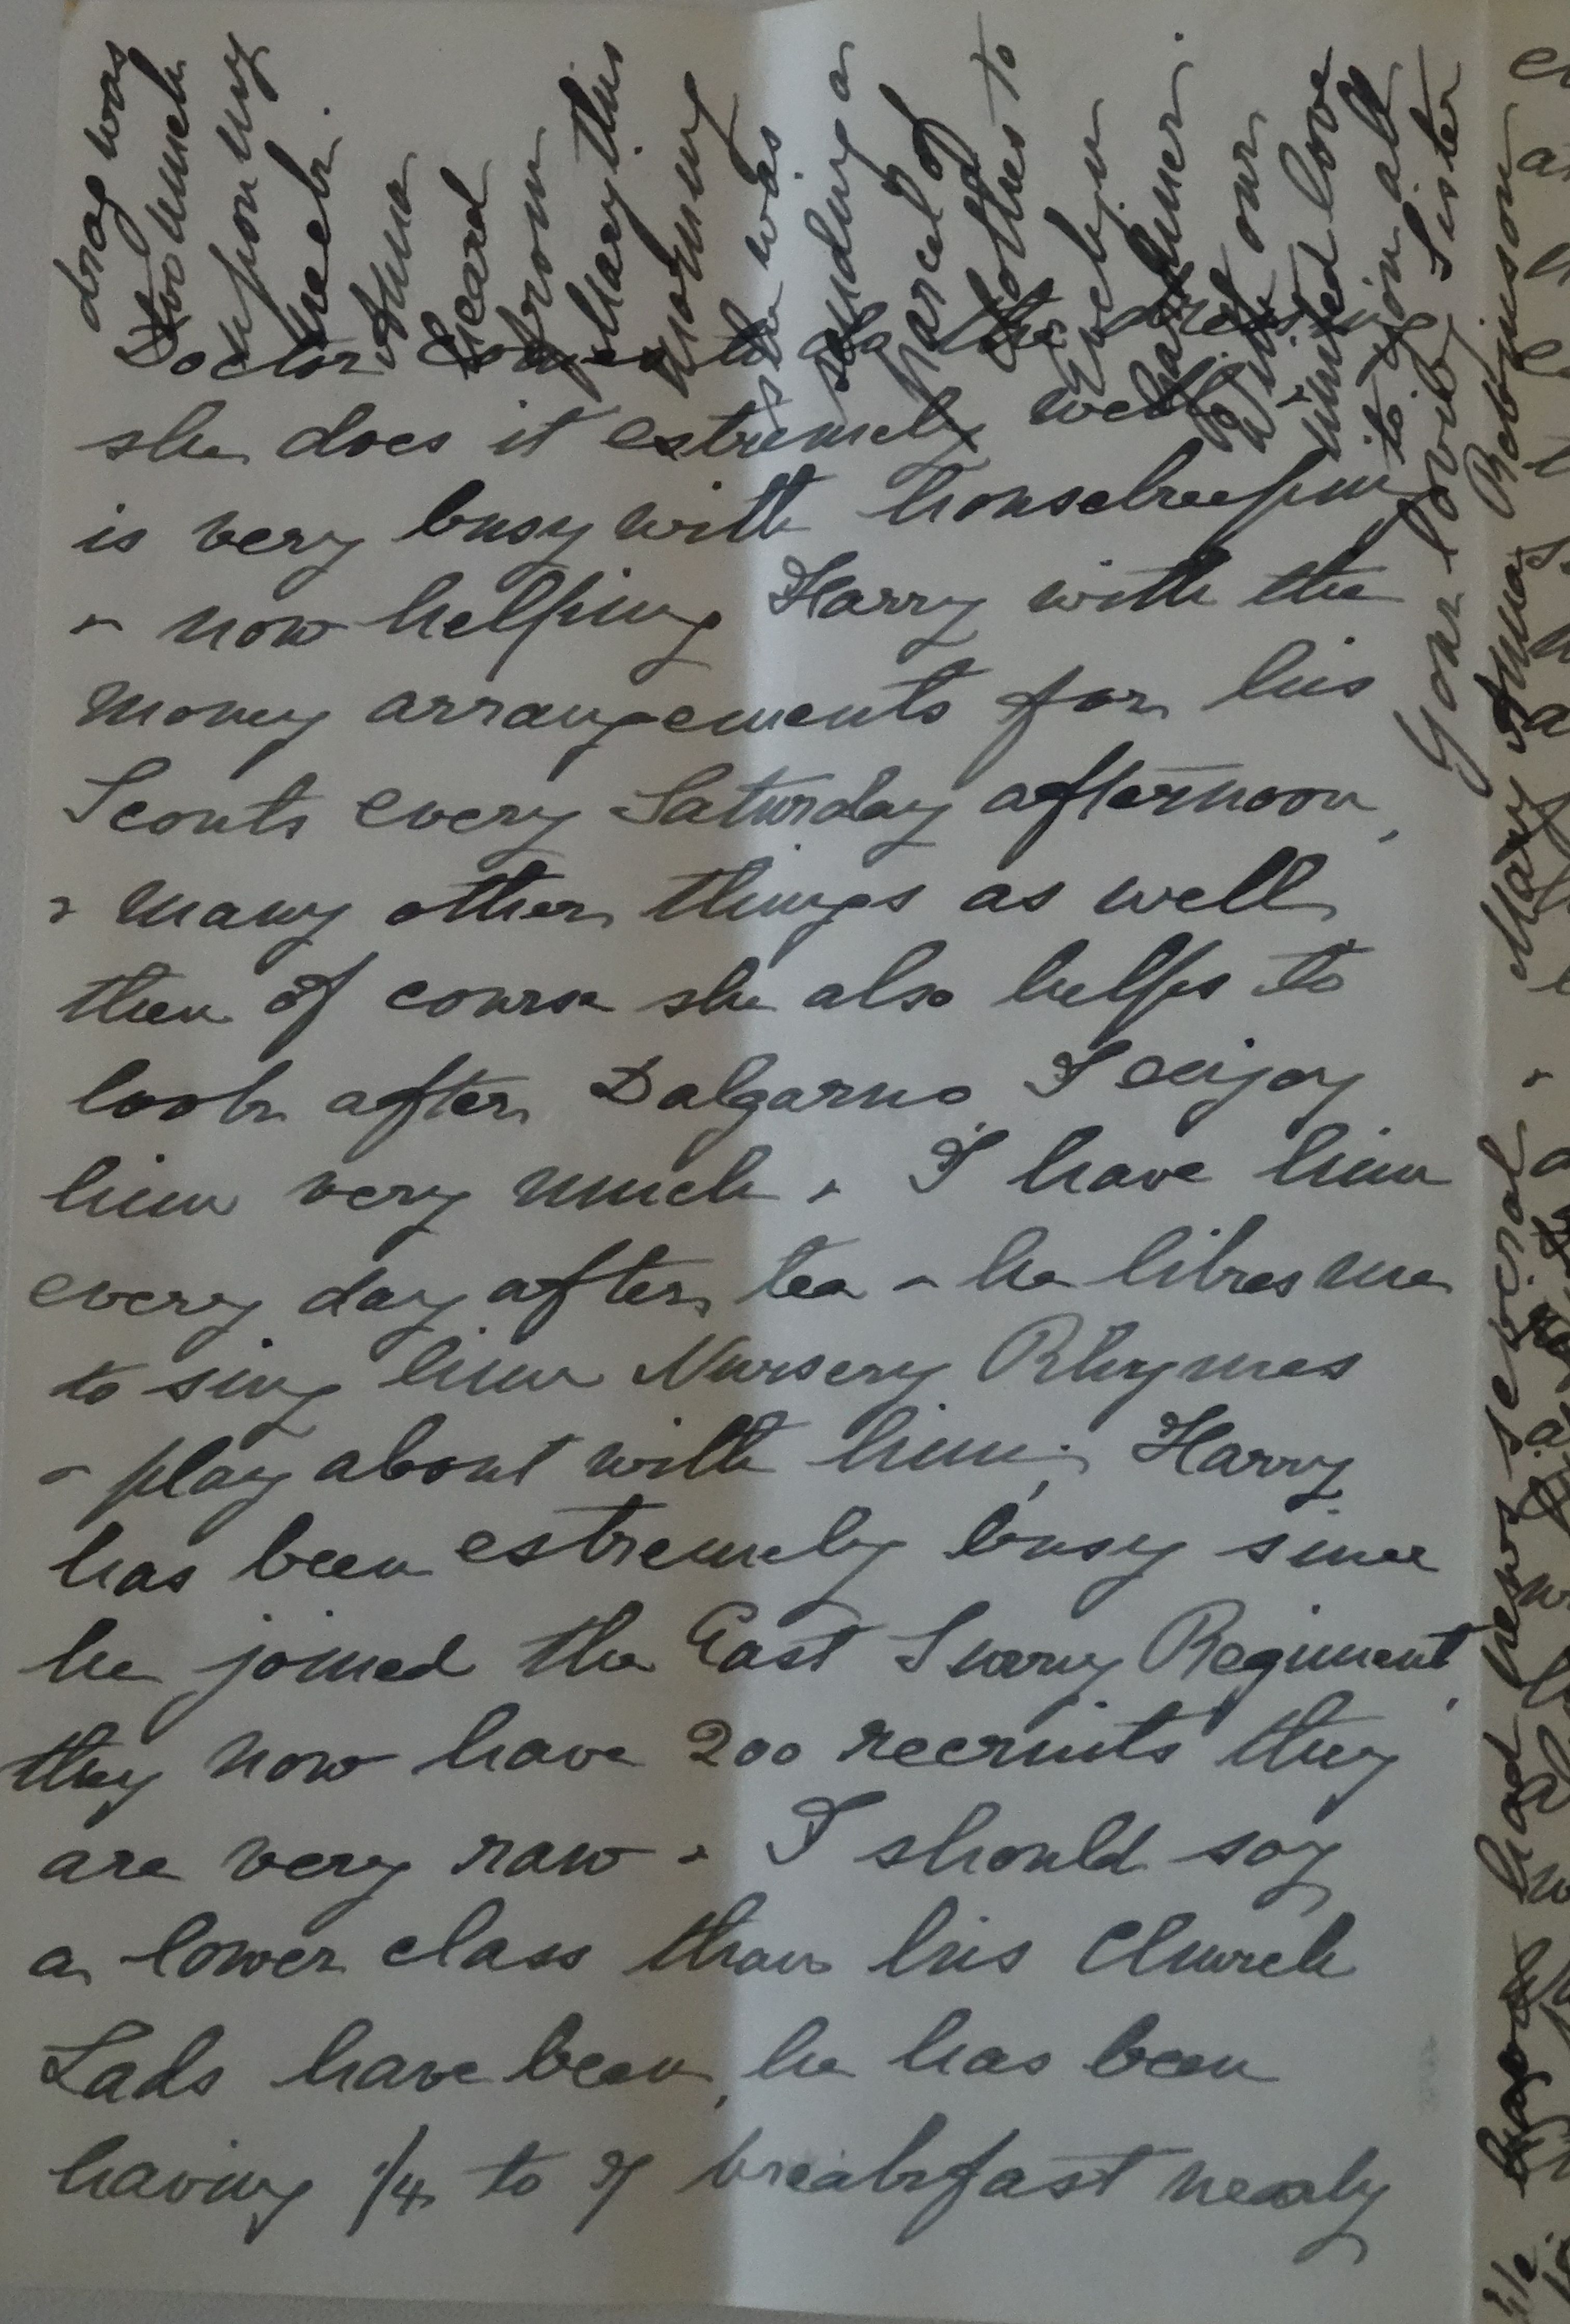 Doctor comes to do the dressing
she does it extremely well
is very busy with housekeeping
& now helping Harry with the
money arrangements for his
Scouts every Saturday afternoon,
& many other things as well
then of course she also helps to
look after Dalgarno I enjoy
him very much & I have him
every day after tea & he likes me
to sing him Nursery Rhymes
& play about with him, Harry
has been extremely busy since
he joined the East Surrey Regiment,
they now have 200 recruits they
are very raw & I should say
a lower class than his Church
Lads have been, he has been
having 1/4 to 7 breakfast nearly
drag was
too much
upon my
neck.
Anna
heard
from
Mary this
morning
she was
sending a
parcel of
clothes to
Evelyn
Palmer.
With our
united love
to you all
Your loving Sister
Mary Anna Robinson
have had news several